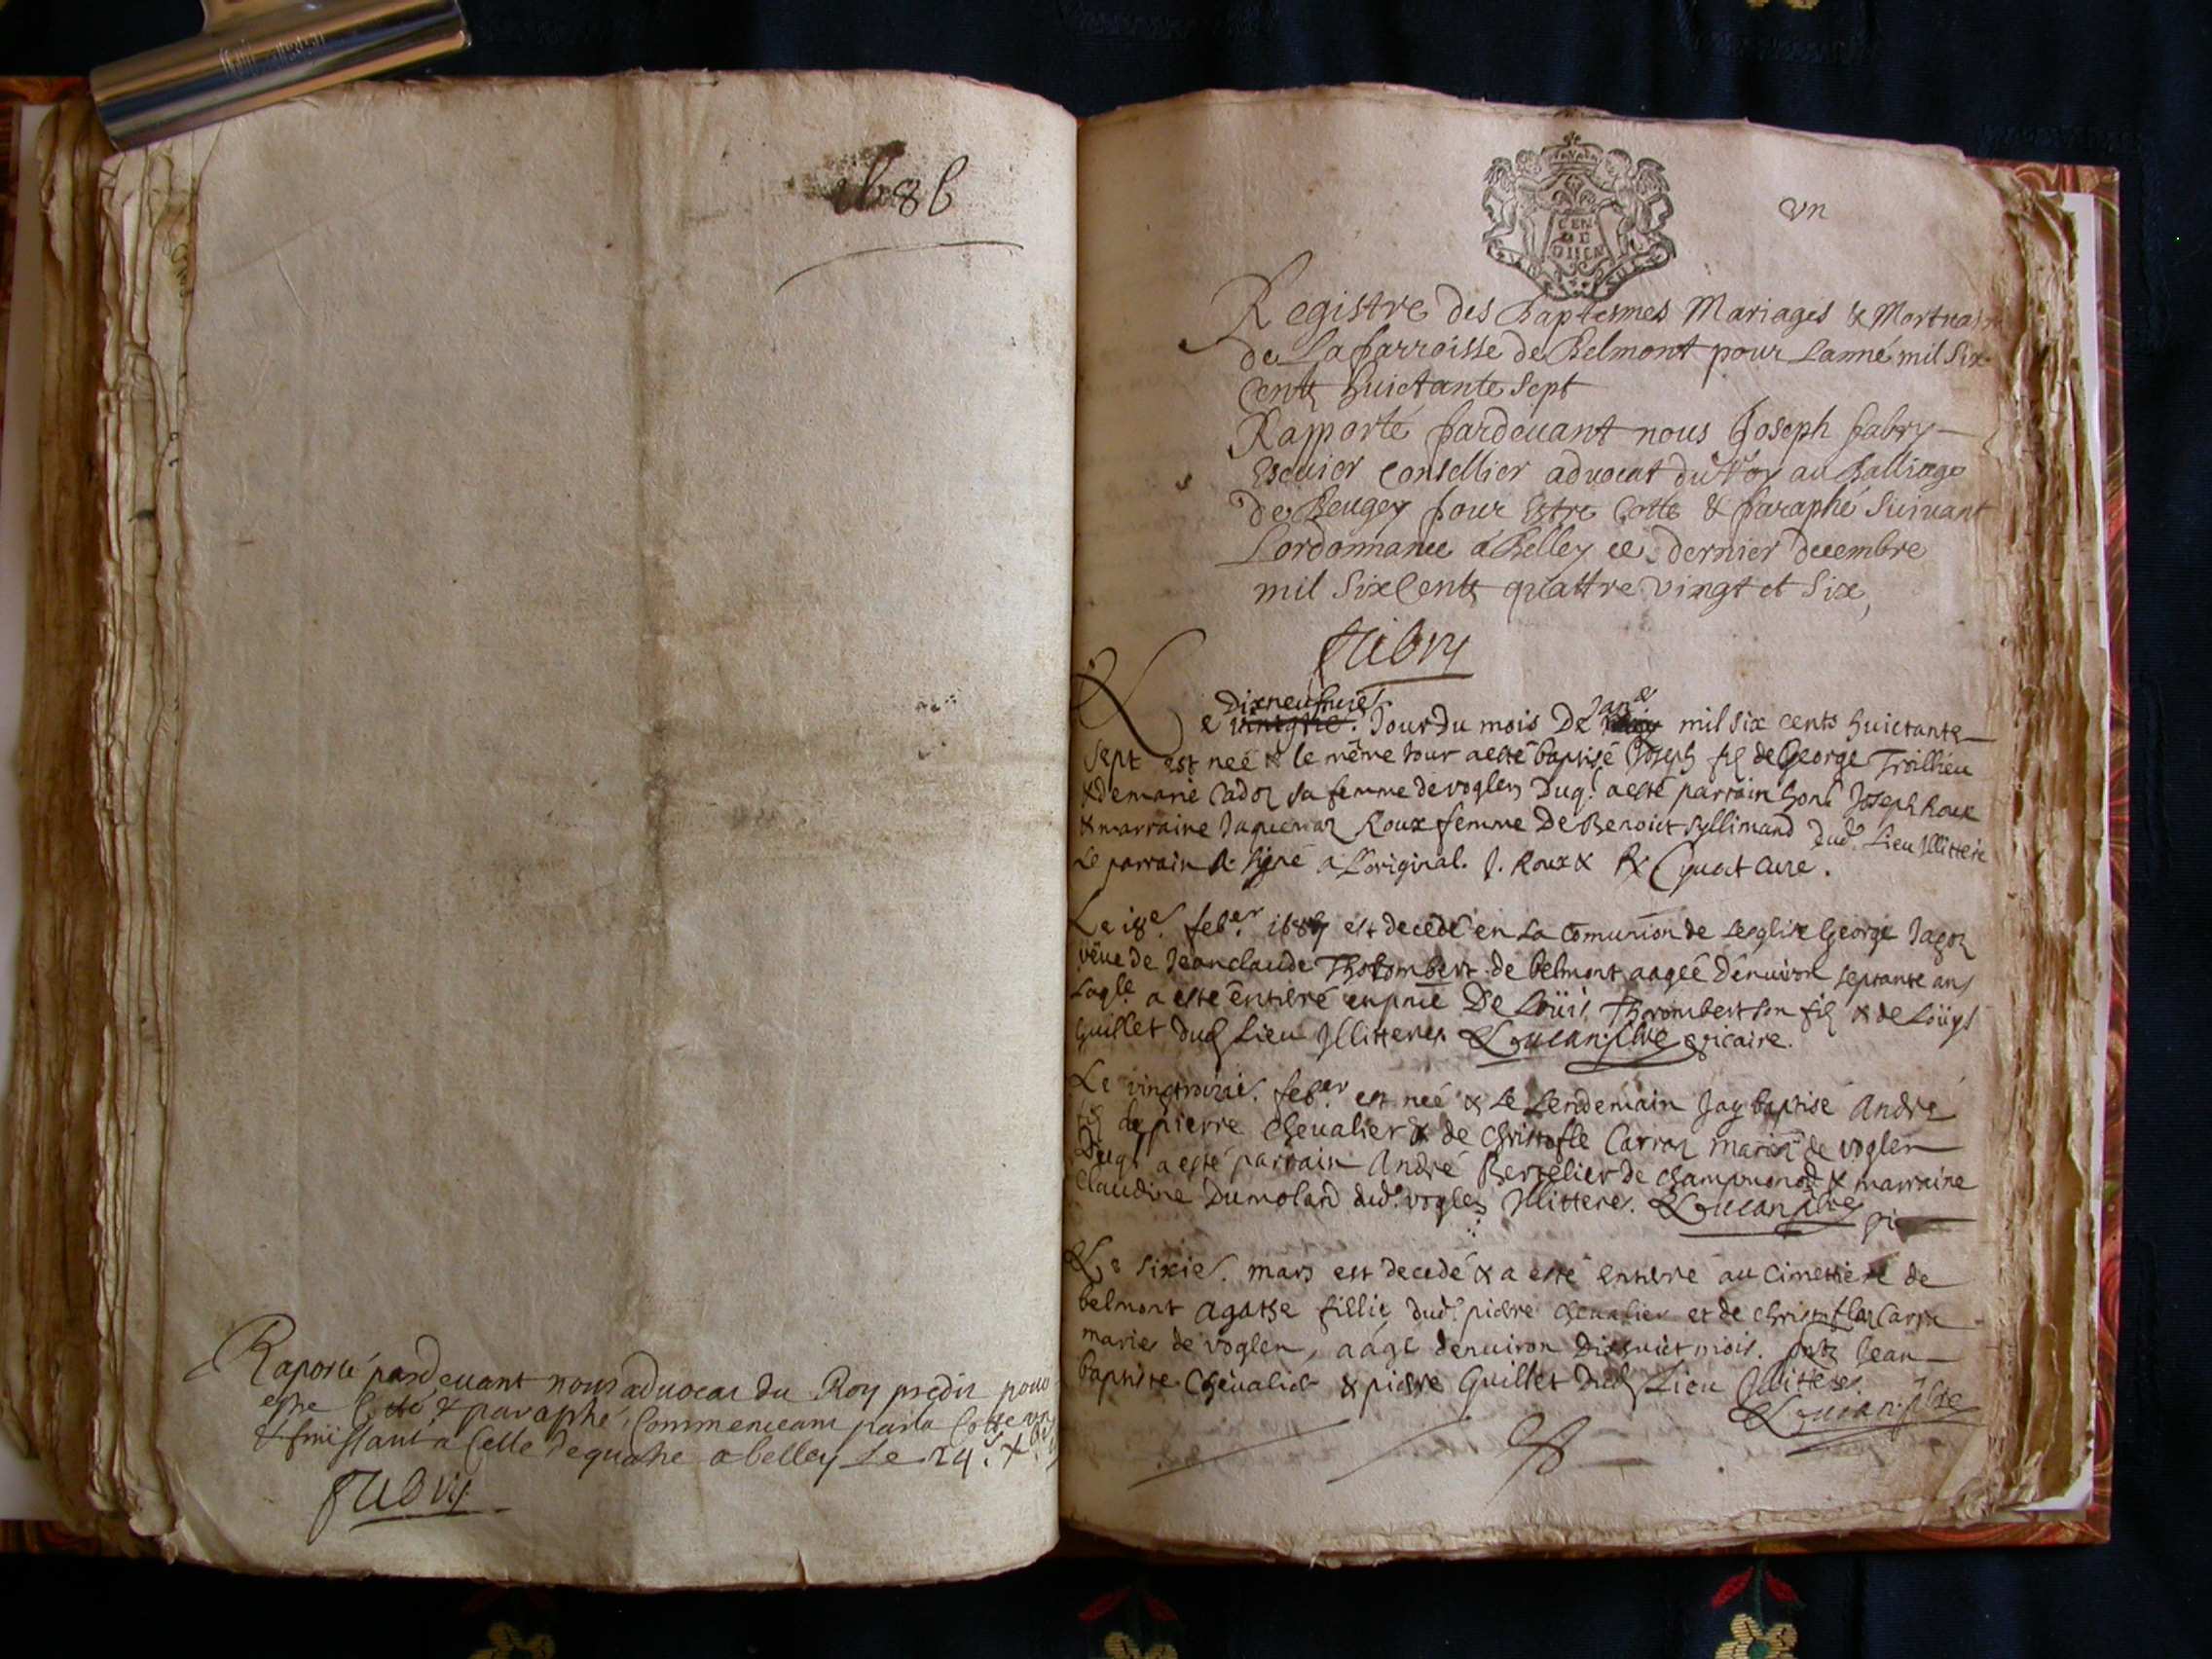 1686
Raporté pardevant nous advocat du Roy predit pour
estre Cotté & paraphé, Commenceant par la Cotte un
& finissant a Celle de quatre a belley Le 24e
Fabry
un
CEN
DE
DIION
Registre des Baptesmes Mariages & Mortuai
de La parroisse de Belmont pour Lanné mil Six
Cents huictante Sept
Rapporté pardevant nous Joseph fabry
Escuier Conseillier advocat du Roy au Balliage
De Beugey pour Estre Cotte & paraphé Suivant
Lordonnance a Belley ce dernier decembre
mil Six Cents quattre vingt et Six,
Fabry
Dixneufvie. Jan
Le Jour Du mois De mil six cents huictante
sept est neé & le même Jour a esté baptisé Joseph fils de George Trollieu
& de marie Cador sa femme de voglen Duq. a esté parrain hon. Joseph Roux
& marraine Roux femme De Benoict Rollimand dud. Lieu Illitteré
Le parrain a signé a Loriginal. J. Roux & Cure.
Le 18e. feb.er 1687 est decedé en La Comunion de Leglise George
véue de Jean claude Thorombert de belmont aageé Denviron septante ans
Laq.le a esté entérré De Loüis Thorombert son fils & de Loüys
Guillet Dud Lieu Illitteres. Lucan pbre vicaire.
Le vingtroizie. feb.er est neé & Le Lendemain Jay baptisé André
fils de pierre Chevalier & de Christofle Carraz mariez de voglen
Duq. a esté parrain André Bertelier de & marraine
Claudine Dumolard dud. voglen Illitteres. Lucan pbre
Le Sixie. mars est decedé & a esté entérré au Cimettiere de
belmont Agathe fillie dud. pierre Chevalier et de Christofle Carra
maries de voglen, aagé denviron Dixhuict mois. pnts Jean
baptiste Chevalier & pierre Guillet Dud Lieu Illitteres.
Lucan pbre